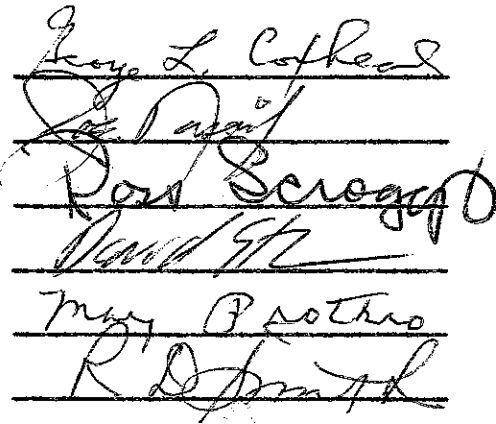 George L. Cofhead
Joe
Ross Scroggs
David
Mary Prothro
R D Smith